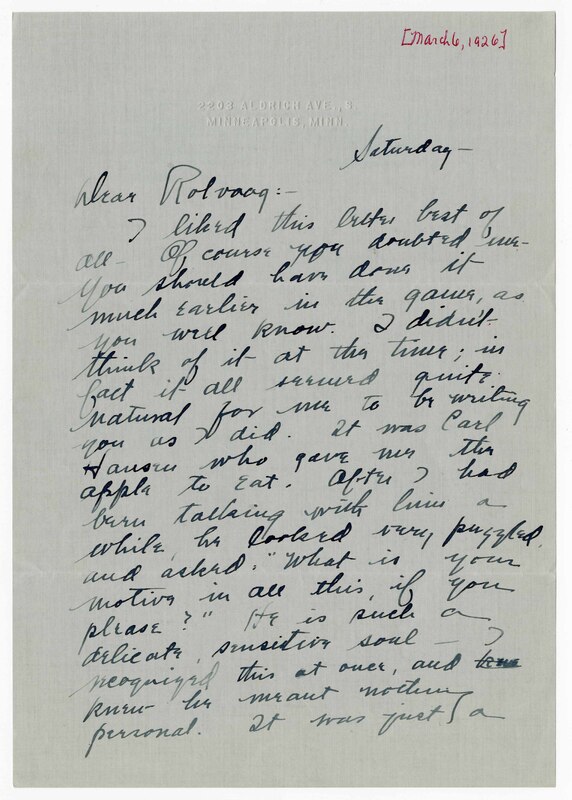 [March 6, 1926]
2203 ALDRICH AVE., S.
MINNEAPOLIS, MINN.
Saturday—
Dear Rolvaag:—
I liked this letter best of
all— Of course you doubted me—
You should have done it
much earlier in the game, as
you well know. I didn't
think of it at the time; in
fact it all seemed quite
natural for me to be writing
you as I did. It was Carl
Hansen who gave me the
apple to eat. After I had
been talking with him a
while, he looked very puzzled,
and asked: "What is your
motive in all this, if you
please?" He is such a
delicate, sensitive soul — I
recognized this at once, and
knew he meant nothing
personal. It was just a